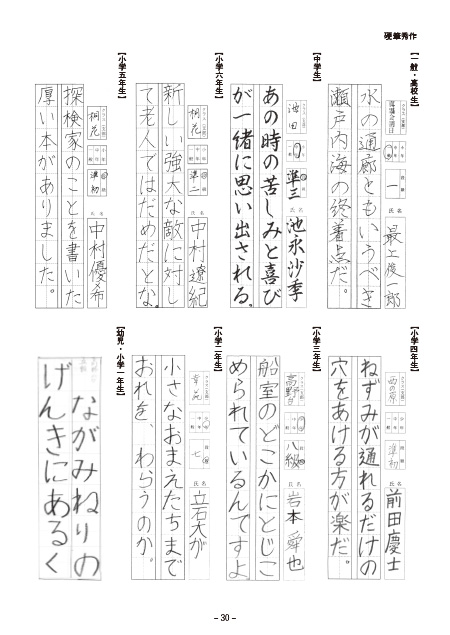 硬筆秀作
【一般・高校生】
一
氏名
最上俊一郎
水の通廊ともいうべき
瀬戸内海の終着点だ。
【中学生】
池田
準三
氏名
池永沙季
あの時の苦しみと喜び
が一緒に思い出される。
【小学六年生】
桐花
準二
氏名
中村遼紀
新しい強大な敵に対し
て老人ではだめだとな。
【小学五年生】
桐花
準初
氏名
中村優希
探検家のことを書いた
厚い本がありました。
【小学四年生】
準初
氏名
前田慶士
ねずみが通れるだけの
穴をあける方が楽だ。
【小学三年生】
高野
八級
氏名
岩本舜也
船室のどこかにとじこ
められているんですよ
【小学二年生】
幸花
七
氏名
立石大が
小さなおまえたちまで
おれを、わらうのか。
【幼児・小学一年生】
ながみねりの
げんきにあるく
– 30 –